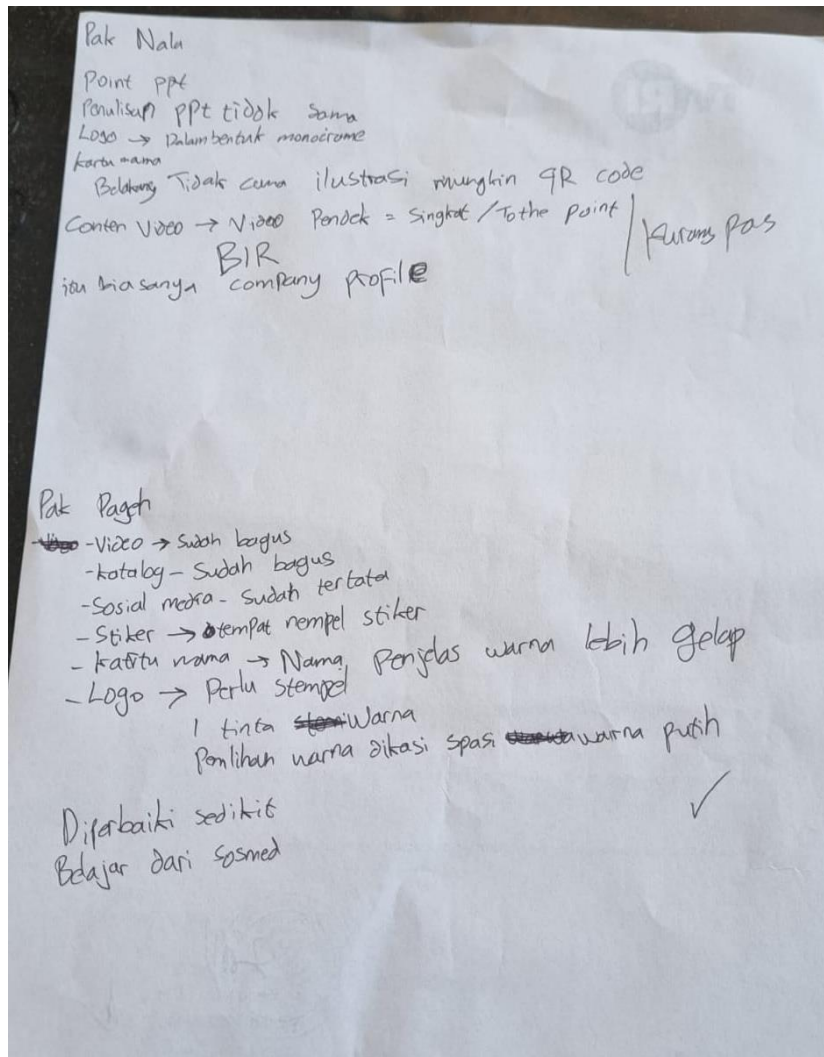 Pak Nalu
Point ppt
Penulisan ppt tidak sama
Logo → Dalam bentuk monocrome
kartu nama
Belakang Tidak cuma ilustrasi mungkin QR code
Conten Video → Video Pendek = Singkat / To the Point / Kurang pas
BIR
itu biasanya company profile
Pak Pageh
- Video → Sudah bagus
- katalog - Sudah bagus
- Sosial media - Sudah tertata
- Stiker → tempat nempel stiker
- kartu nama → Nama, Penjelas warna lebih gelap
- Logo → Perlu stempel
1 tinta Warna
Pemlihan warna dikasi spasi warna putih
✓
Diperbaiki sedikit
Belajar dari sosmed